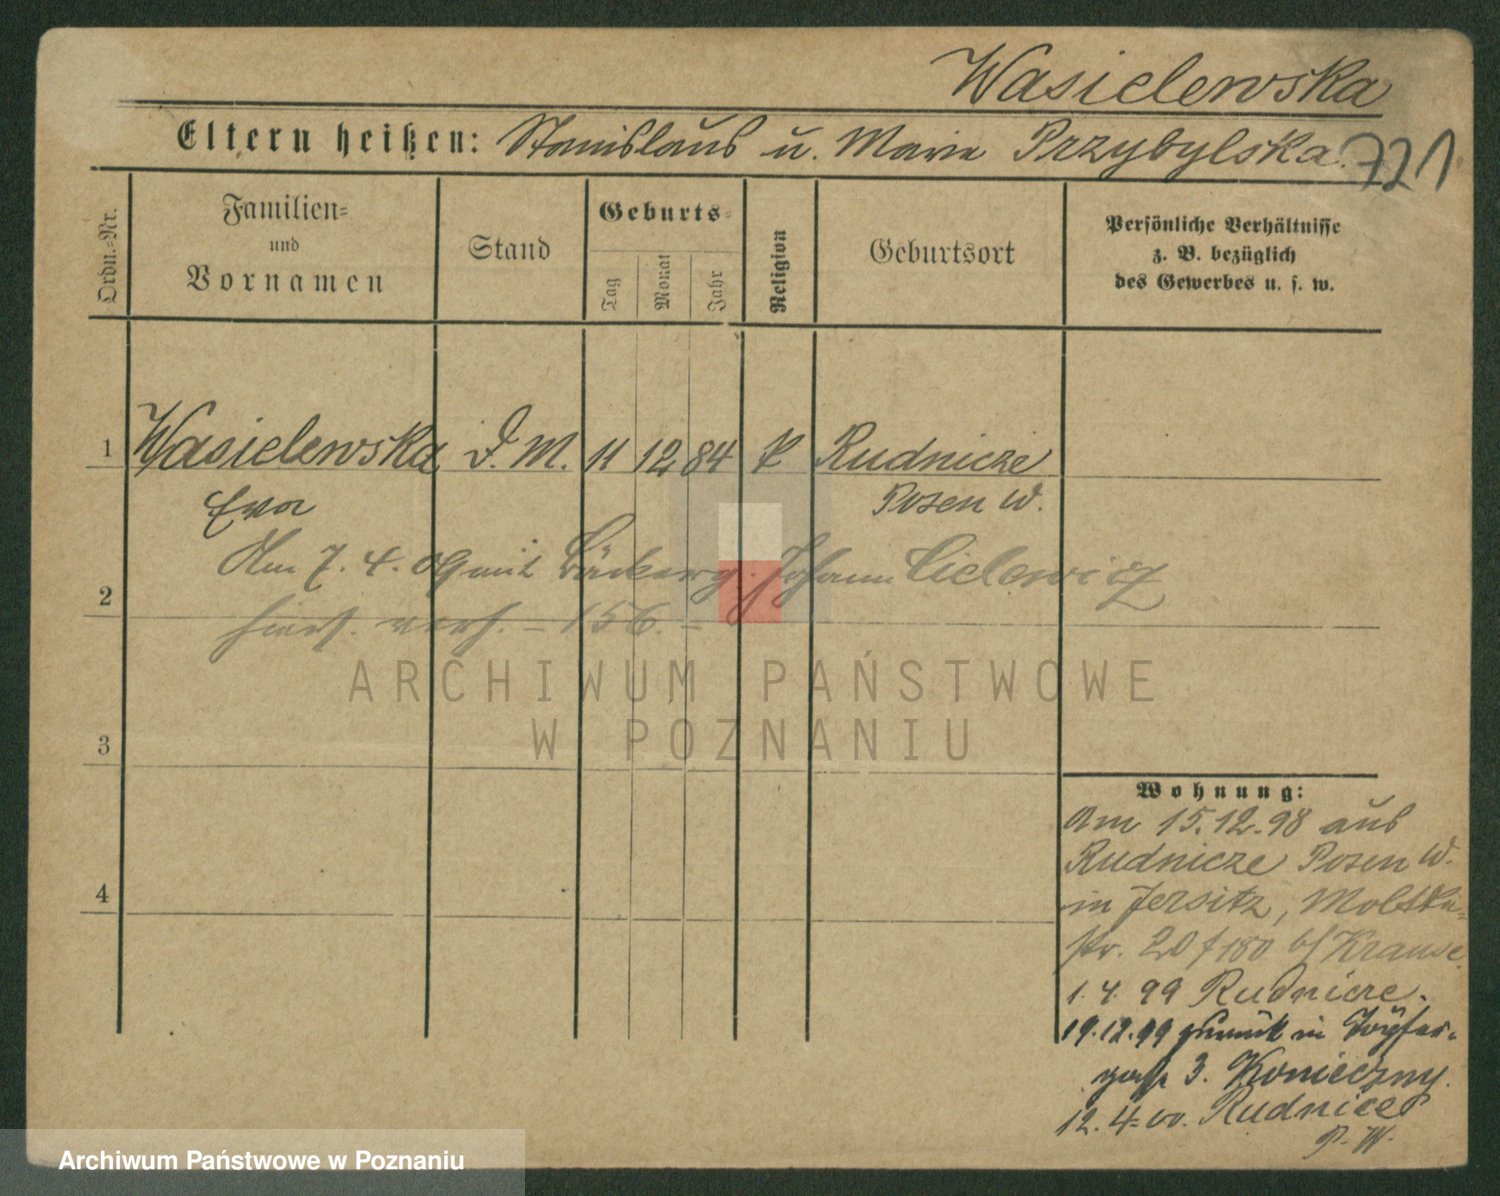 Wasielewska
Eltern heißen: Stanislaus u. Marie Przybylska.
721
Ordn.-Nr.
Familien-
und
Vornamen
Stand
Geburts-
Tag
Monat
Jahr
Religion
Geburtsort
Persönliche Verhältnisse
z. B. bezüglich
des Gewerbes u. s. w.
1 Wasielewska D. M. 11 12 84 k Rudnicze
Eva Posen W.
Am 7. 4. 09 mit Bäckerg. Johann Cielewicz
2
hiers. verh. - 156. -
ARCHIWUM PAŃSTWOWE
W POZNANIU
3
4
Wohnung:
Am 15.12.98 aus
Rudnicze Posen W.
in Jersitz, Moltke-
str. 20 f 180 b/ Krause.
1. 4. 99 Rudnicze.
19.12.99 zurück in Töpfer-
gasse 3. Konieczny.
12. 4. 00. Rudnicze
P. W.
Archiwum Państwowe w Poznaniu